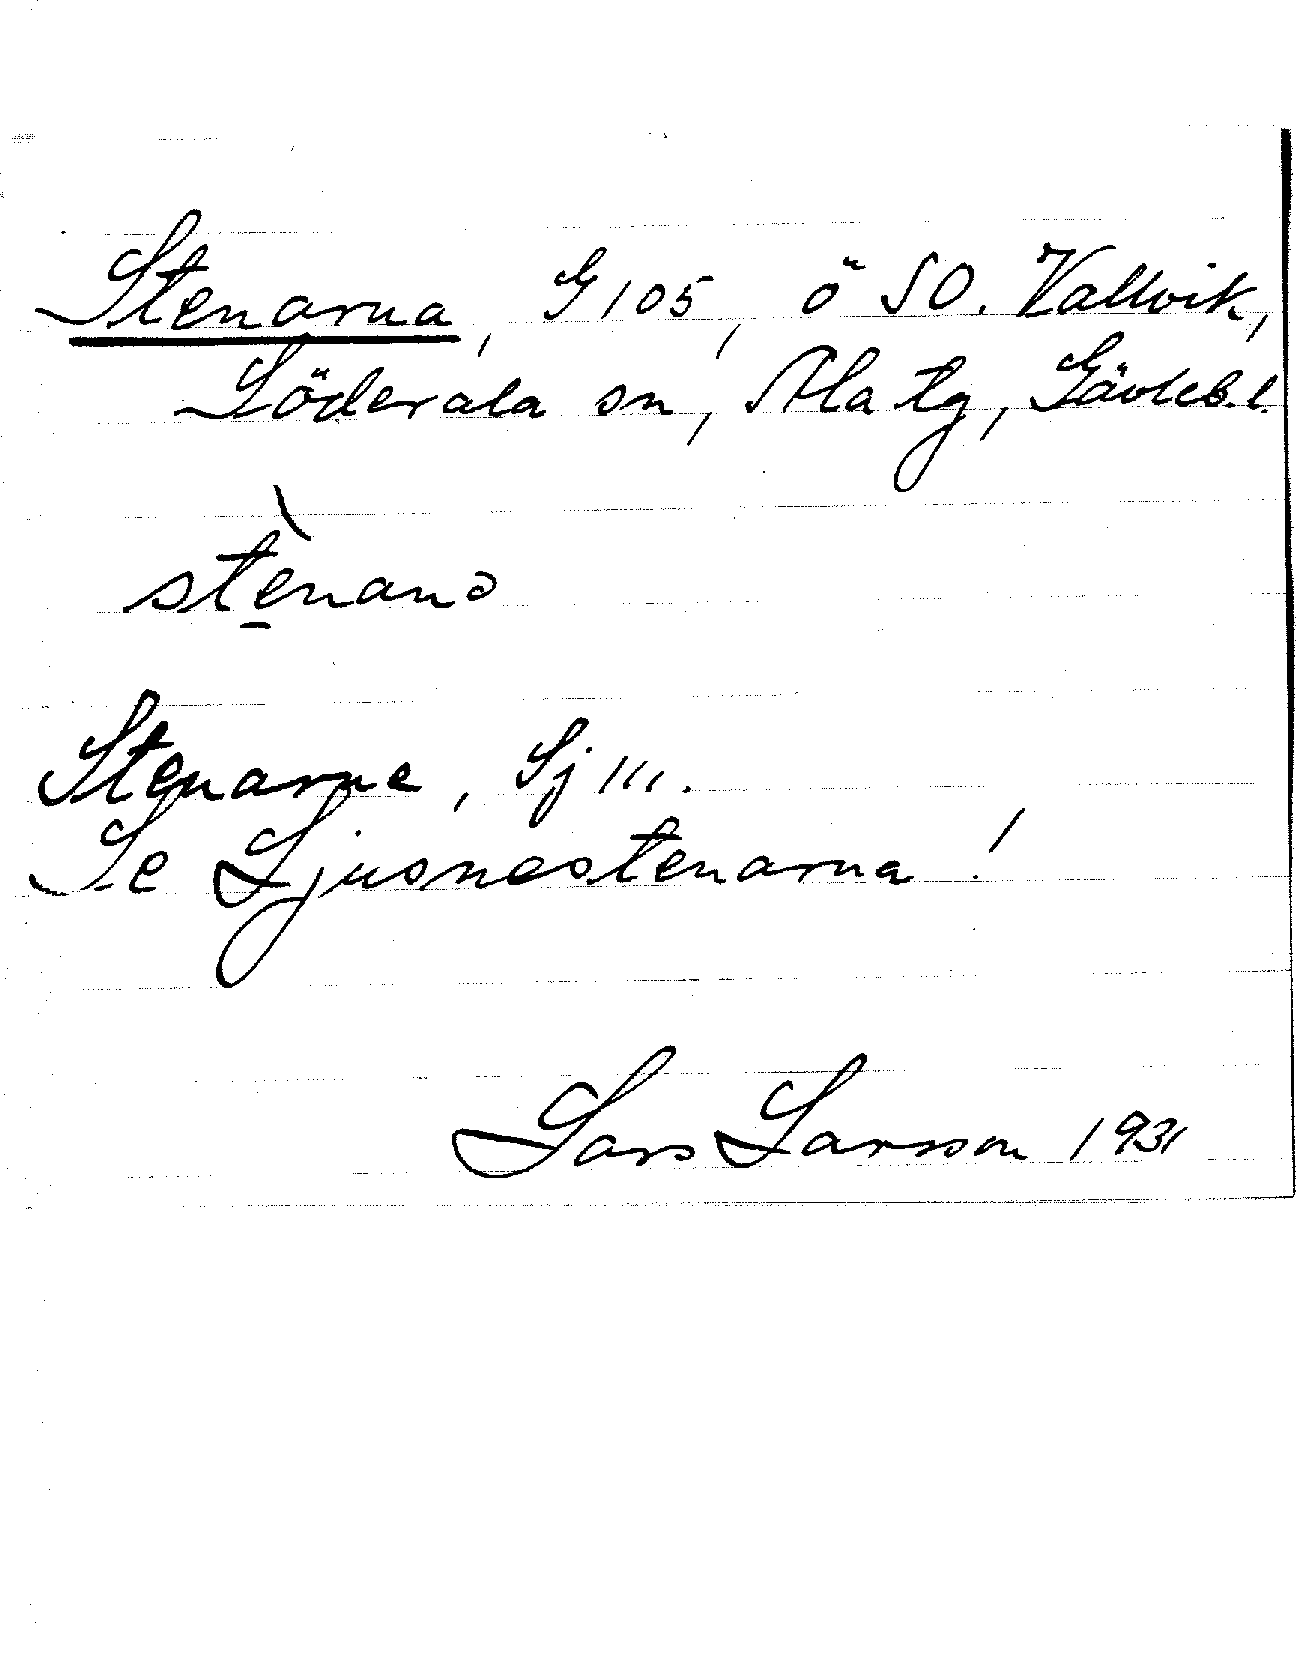 Stenarna, G 105, ö SO. Vallvik,
Söderala sn, Ala tg, Gävleb. l.
stènanɔ
Stenarne, Sj 111.
Se Ljusnestenarna!
Lars Larsson 1931